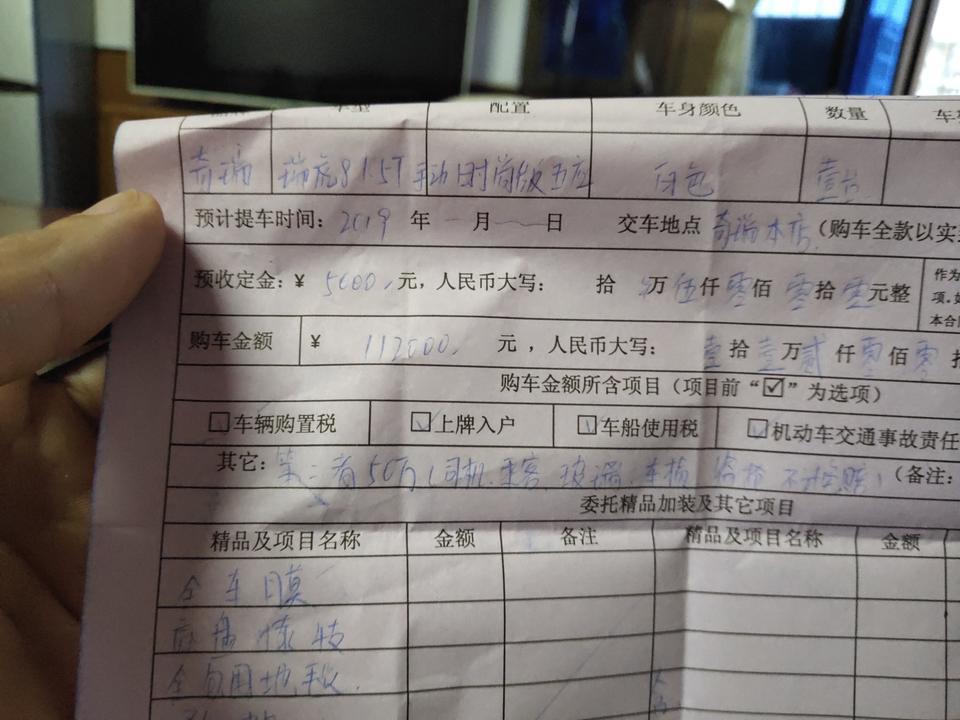 车型 配置 车身颜色 数量
奇瑞 瑞虎8 1.5T 手动时尚版五座 白色 壹台
预计提车时间: 2019 年 一 月 日 交车地点 奇瑞本店 (购车全款以实
预收定金: ¥ 5000. 元, 人民币大写: 拾 万 伍仟 零佰 零拾 零元整
作为
项.如
本合同
购车金额 ¥ 112000. 元 , 人民币大写: 壹拾 壹万 贰仟 零佰 零
购车金额所含项目 (项目前 “☑” 为选项)
☑车辆购置税 ☑上牌入户 ☑车船使用税 ☑机动车交通事故责任
其它: 第三者50万(司机.乘客.玻璃.车损 盗抢 不计免赔) (备注:
委托精品加装及其它项目
精品及项目名称 金额 备注 精品及项目名称 金额
全车膜
底盘
全包围地